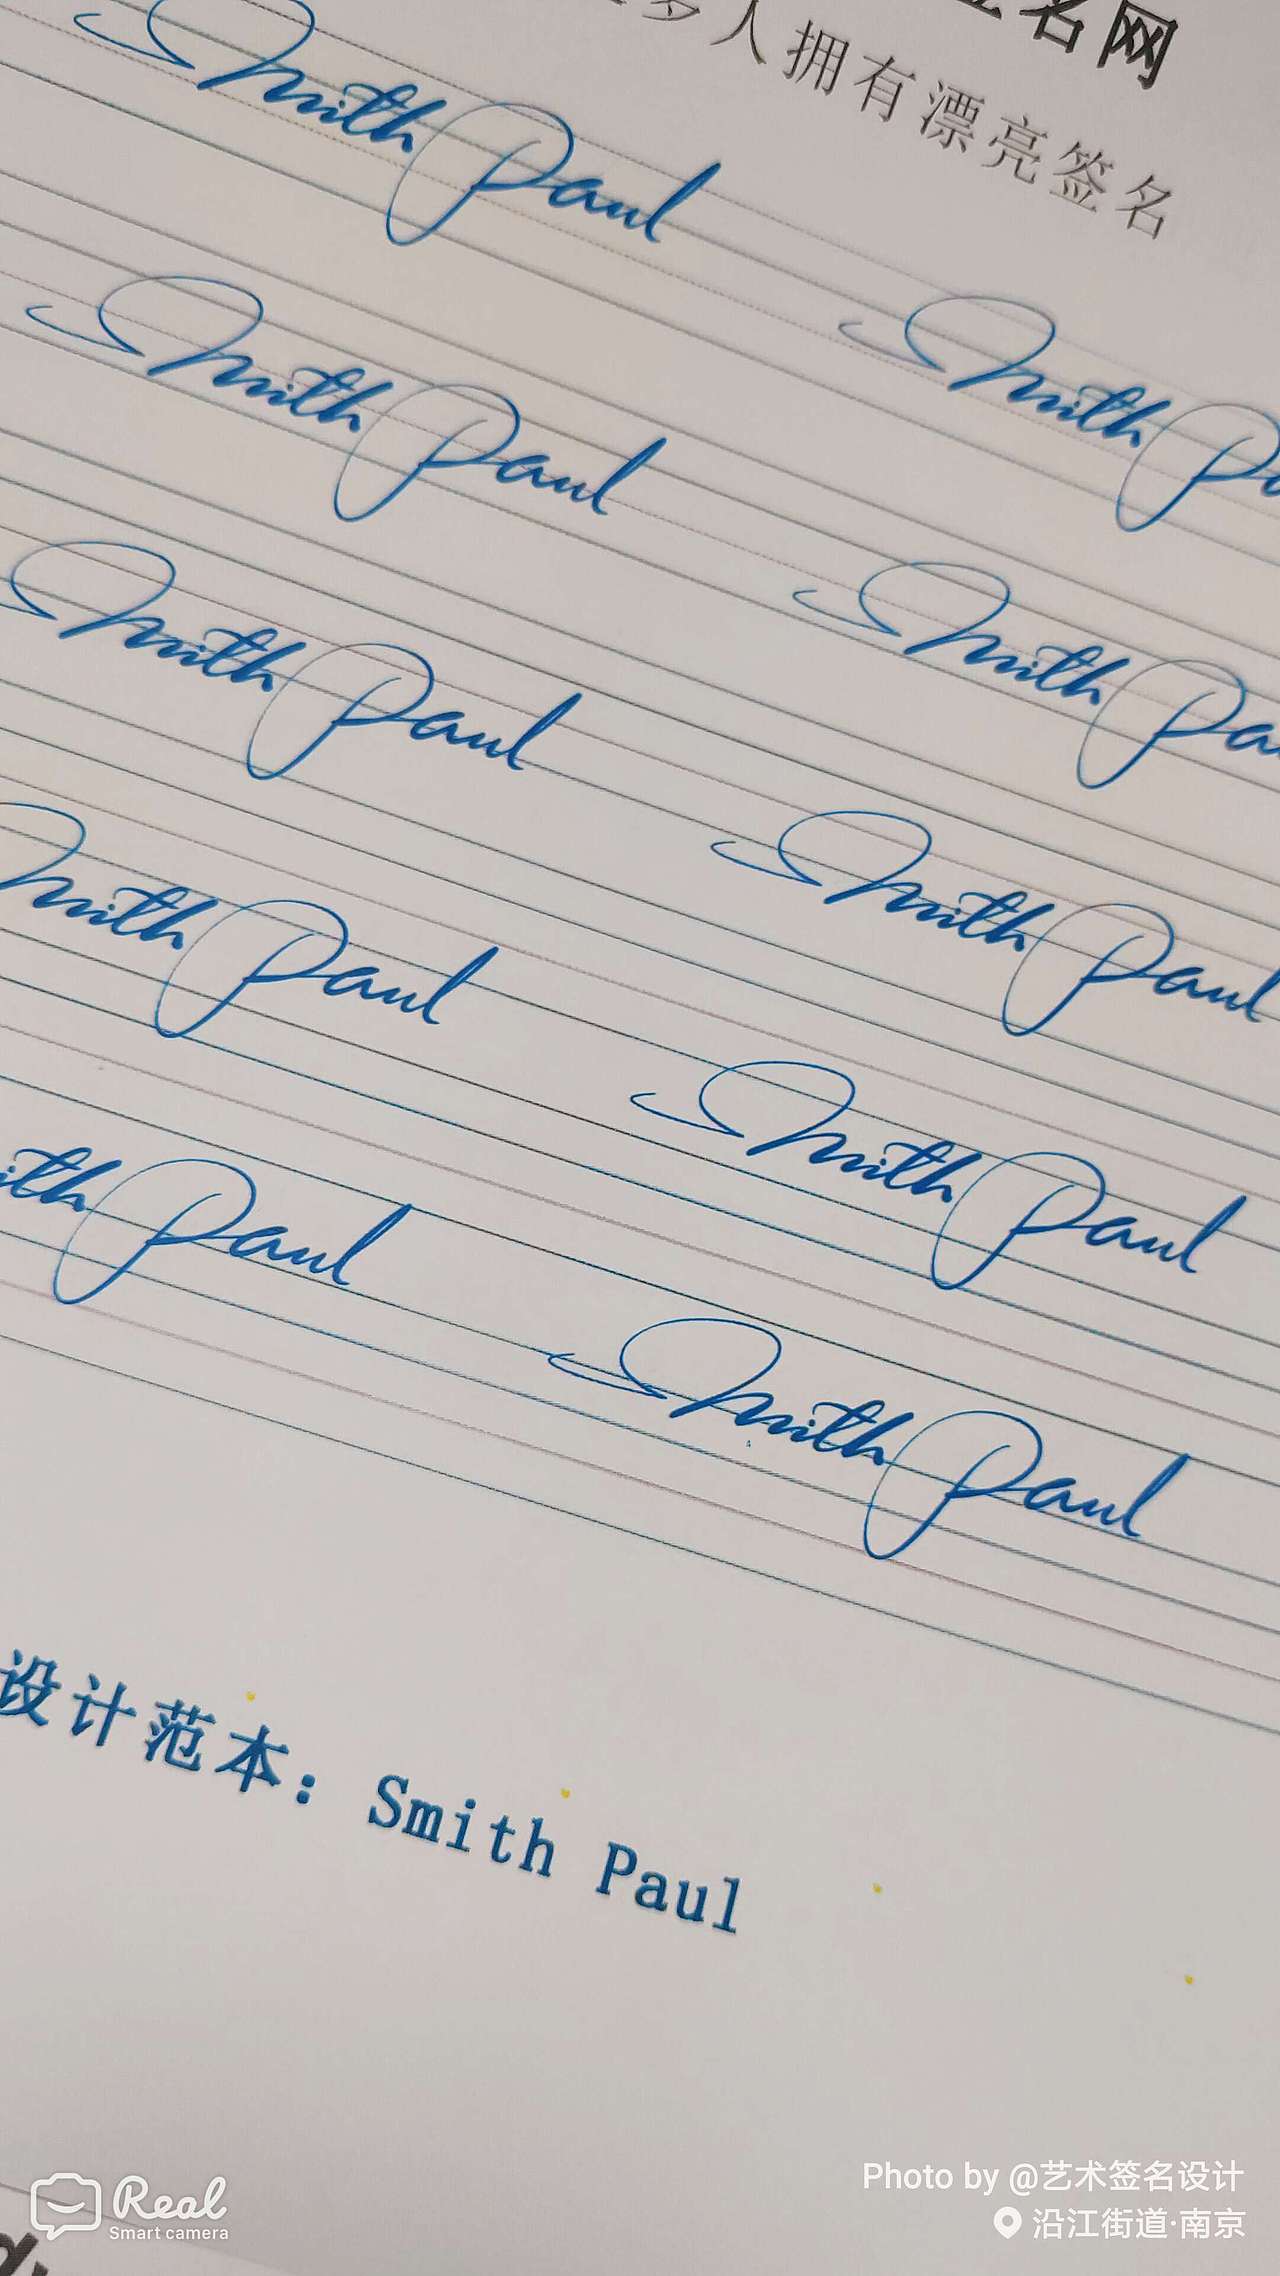 签名网
多人拥有漂亮签名
Smith Paul
Smith Paul
Smith Paul
Smith Paul
Smith Paul
Smith Paul
Smith Paul
Smith Paul
Smith Paul
Smith Paul
设计范本：Smith Paul
Real
Smart camera
Photo by @艺术签名设计
沿江街道·南京